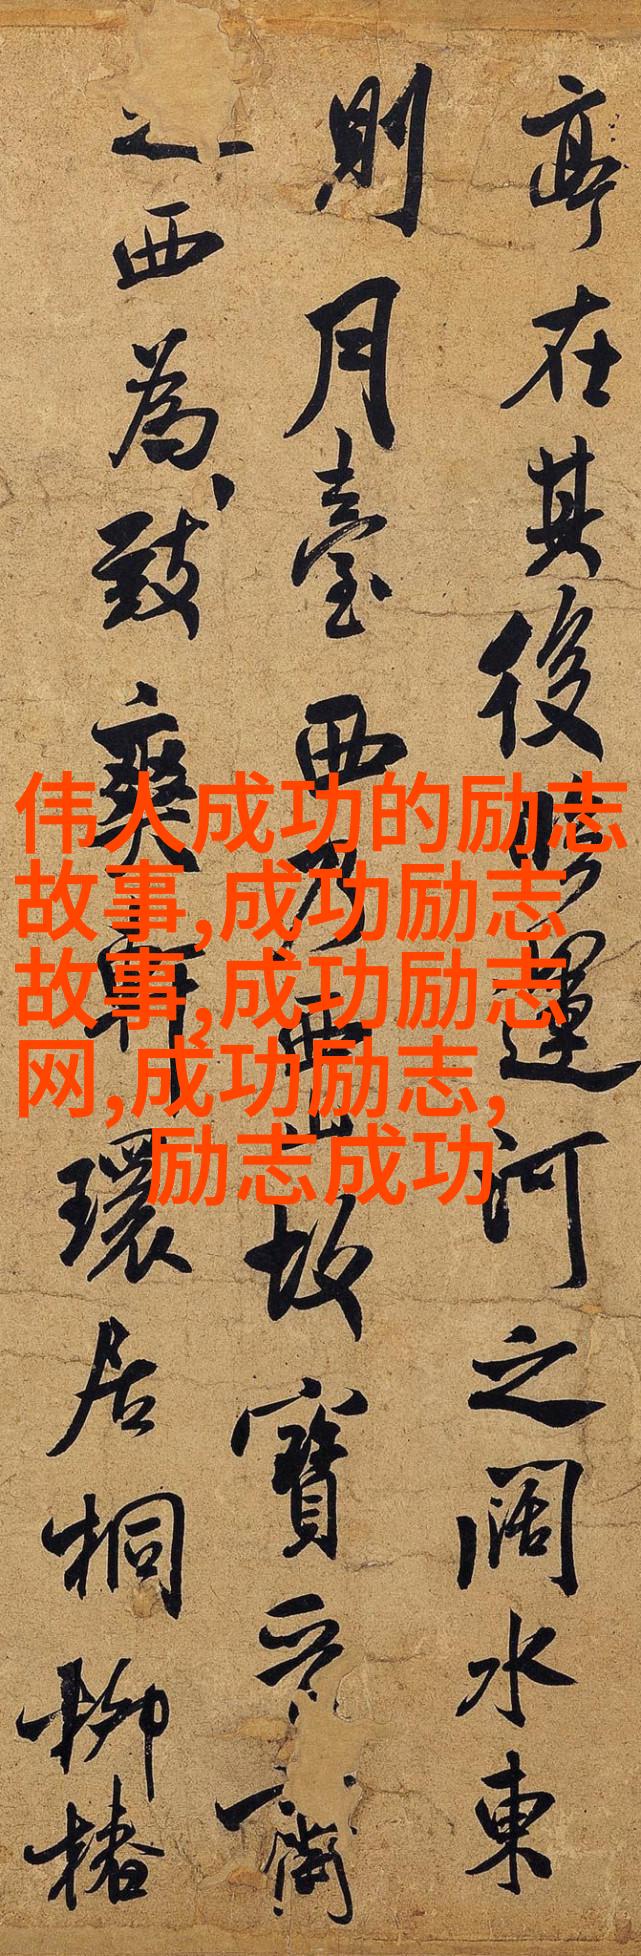 亭在其後臨運河之闊水東
則月臺西乃西山故寶晉齋
之西為致爽軒環居桐柳椿
伟人成功的励志
故事,成功励志
故事,成功励志
网,成功励志,
励志成功